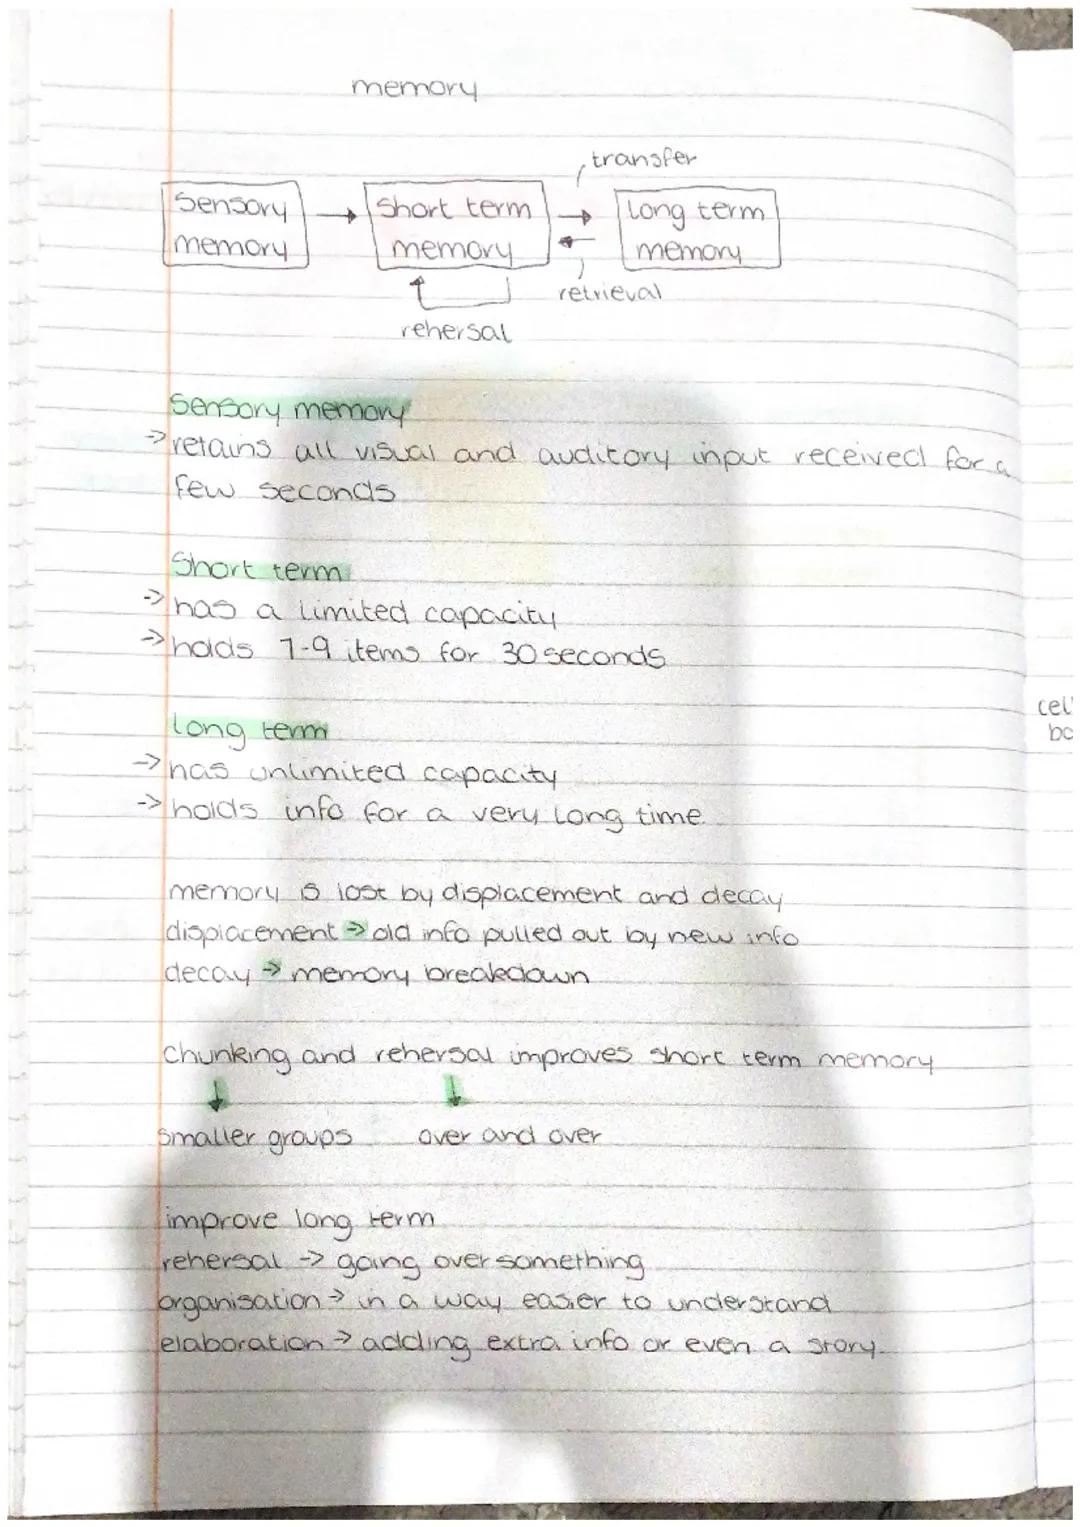 memory
transfer
Sensory memory
Short term memory
Long term memory
retrieval
rehersal
Sensory memory
→ retains all visual and auditory input received for a
few seconds
Short term
→ has a limited capacity
→ holds 7-9 items for 30 seconds
Long term
→ has unlimited capacity
→ holds info for a very long time
memory is lost by displacement and decay
displacement → old info pulled out by new info
decay → memory breakdown
Chunking and rehersal improves short term memory
smaller groups over and over
improve long term
rehersal → going over something
organisation → in a way easier to understand
elaboration → adding extra info or even a story.